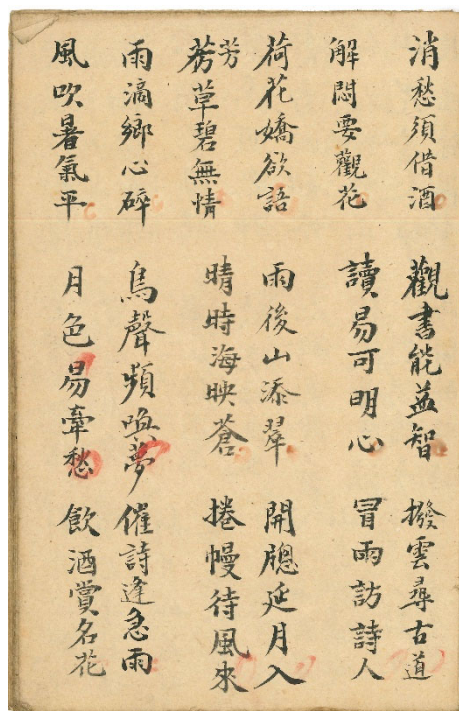 消愁須借酒
解悶要觀花
荷花嬌欲語
芳
蒡草碧無情
雨滴鄉心碎
風吹暑氣平
觀書能益智
讀易可明心
雨後山添翠
晴時海映蒼
鳥聲頻喚夢
月色易牽愁
撥雲尋古道
冒雨訪詩人
開牕延月入
捲幔待風來
催詩逢急雨
飲酒賞名花